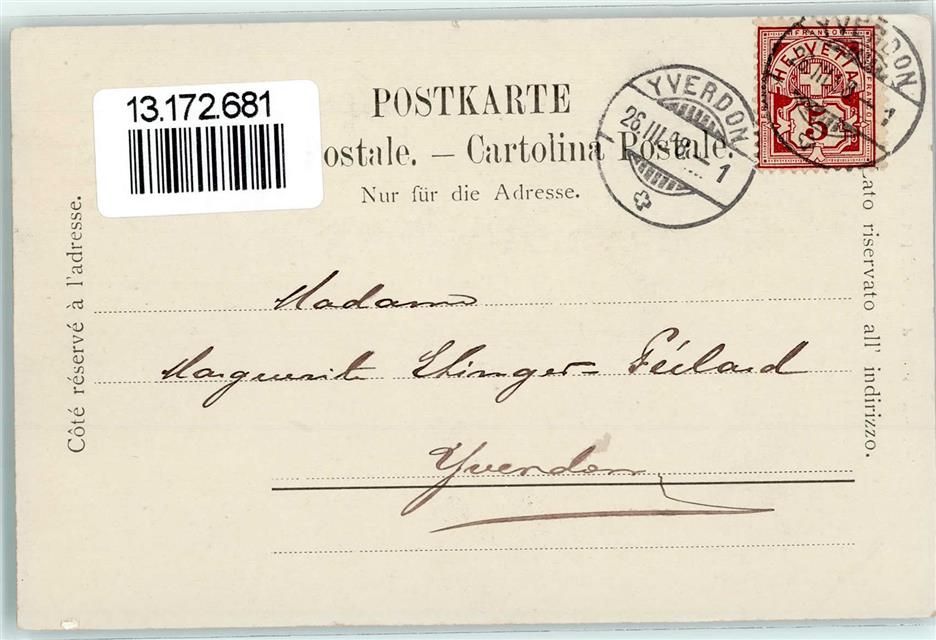 13.172.681
POSTKARTE
ostale. — Cartolina Postale.
Nur für die Adresse.
Côté réservé à l'adresse.
Lato riservato all' indirizzo.
FRANCO
HELVETIA
5
YVERDON
26.III.98.
1
YVERDON
1
Madame
Marguerite
Yverdon